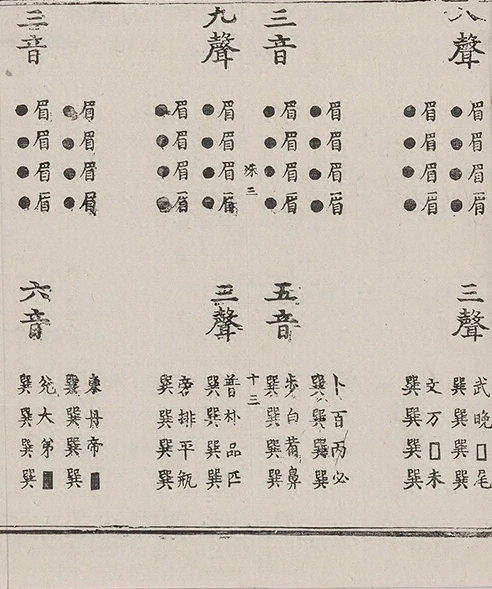 八聲
眉眉眉眉
●●●●
眉眉眉眉
●●●●
三音
眉眉眉眉
●●●●
眉眉眉眉
●●●●
三
九聲
眉眉眉眉
●●●●
眉眉眉眉
●●●●
三音
眉眉眉眉
●●●●
眉眉眉眉
●●●●
三聲
武晚□尾
巽巽巽巽
文万□未
巽巽巽巽
五音
卜百丙必
巽巽巽巽
步白鼻
巽巽巽巽
十三
三聲
普朴品匹
巽巽巽巽
旁排平瓶
巽巽巽巽
六音
東丹帝■
巽巽巽巽
兌大第■
巽巽巽巽